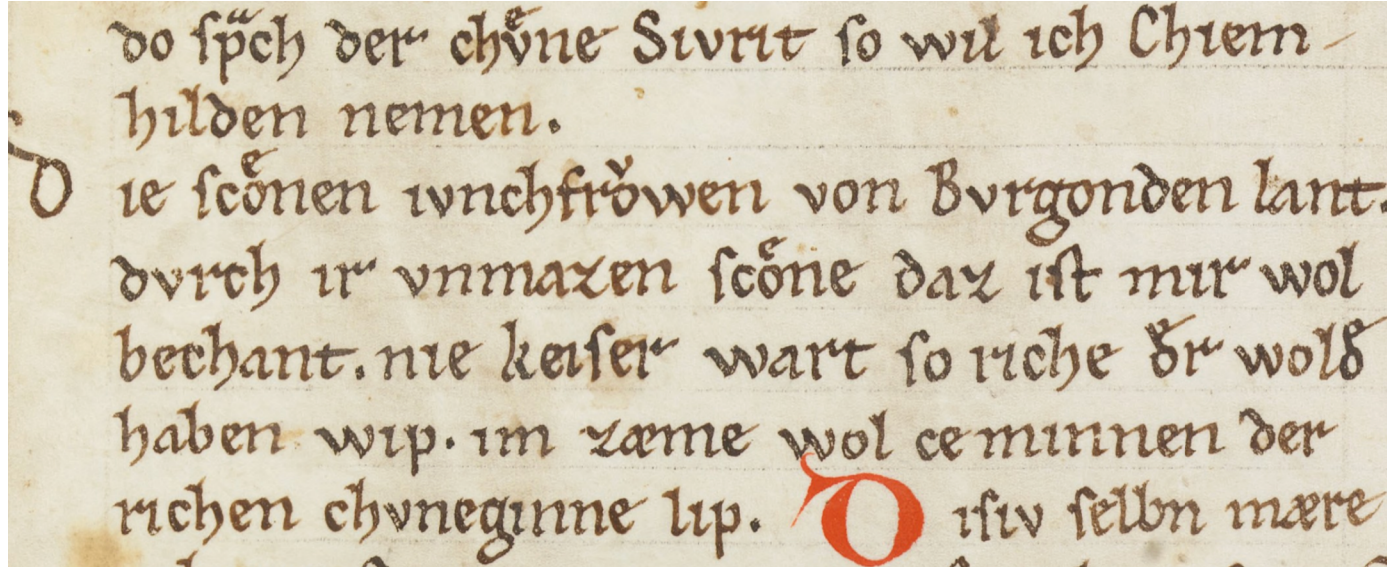 do ſpᷓch der chvͤne Sivrit ſo wil ich Chiem-
hilden nemen.
D ie ſcoͤnen ivnchfroͮwen von Bvrgonden lant.
dvrch ir vnmazen ſcoͤne daz iſt mir wol
bechant. nie keiſer wart ſo riche ð̛r wolð̛
haben wip. im zæme wol ce minnen der
richen chvneginne lip. D iſiv ſelbn mære